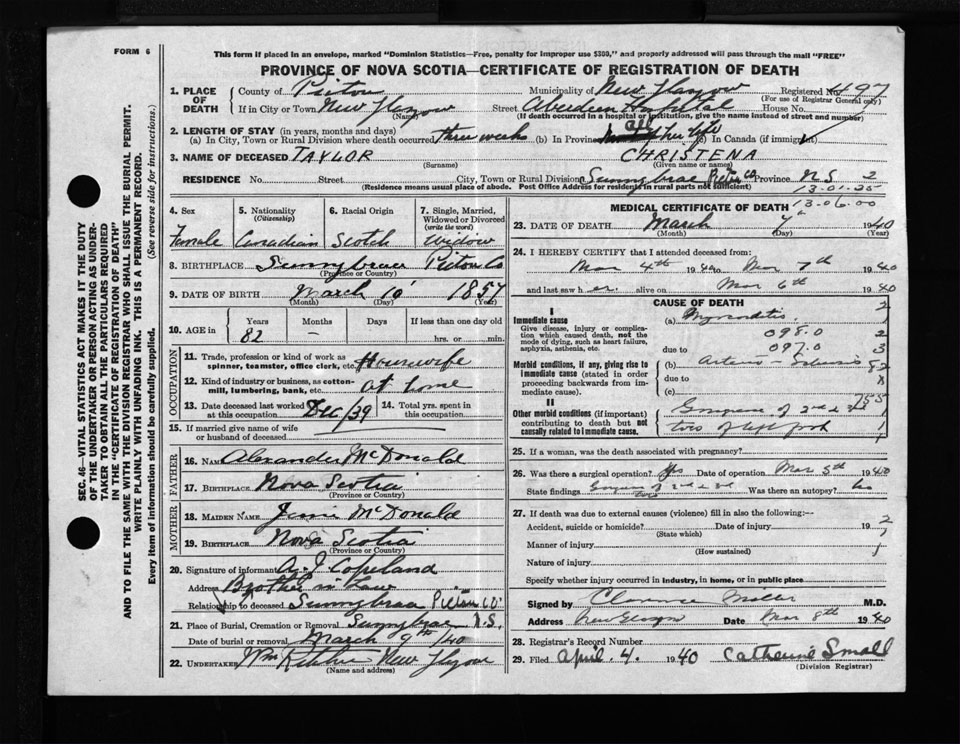 FORM 6
This form if placed in an envelope, marked "Dominion Statistics—Free, penalty for improper use $300," and properly addressed will pass through the mail "FREE"
PROVINCE OF NOVA SCOTIA—CERTIFICATE OF REGISTRATION OF DEATH
SEC. 46—VITAL STATISTICS ACT MAKES IT THE DUTY
OF THE UNDERTAKER OR PERSON ACTING AS UNDER-
TAKER TO OBTAIN ALL THE PARTICULARS REQUIRED
IN THE "CERTIFICATE OF REGISTRATION OF DEATH"
AND TO FILE THE SAME WITH THE DIVISION REGISTRAR WHO SHALL ISSUE THE BURIAL PERMIT.
WRITE PLAINLY WITH UNFADING INK. THIS IS A PERMANENT RECORD.
Every item of information should be carefully supplied. (See reverse side for instructions.)
1. PLACE OF DEATH County of Pictou Municipality of New Glasgow Registered No. 497
(For use of Registrar General only)
If in City or Town New Glasgow Street Aberdeen Hospital House No.
(Name) (If death occurred in a hospital or institution, give the name instead of street and number)
2. LENGTH OF STAY (in years, months and days)
(a) In City, Town or Rural Division where death occurred three weeks (b) In Province all her life (c) In Canada (if immigrant)
3. NAME OF DECEASED TAYLOR CHRISTENA
(Surname) (Given name or names)
RESIDENCE No. Street City, Town or Rural Division Sunnybrae Pictou Co Province N S 2
(Residence means usual place of abode. Post Office Address for residents in rural parts not sufficient)
13.01.25
13.06.00
4. Sex Female
5. Nationality (Citizenship) Canadian
6. Racial Origin Scotch
7. Single, Married, Widowed or Divorced (write the word) Widow
8. BIRTHPLACE Sunnybrae Pictou Co
(Province or Country)
9. DATE OF BIRTH March 10 1857
(Month) (Day) (Year)
10. AGE in Years 82 Months – Days If less than one day old hrs. or min.
OCCUPATION
11. Trade, profession or kind of work as spinner, teamster, office clerk, etc. Housewife
12. Kind of industry or business, as cotton-mill, lumbering, bank, etc. at home
13. Date deceased last worked at this occupation Dec/39 14. Total yrs. spent in this occupation
15. If married give name of wife or husband of deceased
FATHER
16. NAME Alexander McDonald
17. BIRTHPLACE Nova Scotia
(Province or Country)
MOTHER
18. MAIDEN NAME Jessie McDonald
19. BIRTHPLACE Nova Scotia
(Province or Country)
20. Signature of informant A. J. Copeland
Address
Relationship to deceased Brother in Law Sunnybrae Pictou Co
21. Place of Burial, Cremation or Removal Sunnybrae N.S.
Date of burial or removal March 9th/40
22. UNDERTAKER Wm New Glasgow
(Name and address)
MEDICAL CERTIFICATE OF DEATH
23. DATE OF DEATH March 7th 1940
(Month) (Day) (Year)
24. I HEREBY CERTIFY that I attended deceased from:
Mar 4th 1940 to Mar 7th 1940
and last saw her alive on Mar 6th 1940
CAUSE OF DEATH
I
Immediate cause (a) Myocarditis 2
Give disease, injury or complication which caused death, not the mode of dying, such as heart failure, asphyxia, asthenia, etc. 098.0 2
due to 097.0 3
Morbid conditions, if any, giving rise to immediate cause (stated in order proceeding backwards from immediate cause) (b) Arterio Sclerosis 82
due to 8
(c) 755
II
Other morbid conditions (if important) contributing to death but not causally related to immediate cause. Gangrene of 2nd & 3rd toes of left foot
25. If a woman, was the death associated with pregnancy?
26. Was there a surgical operation? Yes Date of operation Mar 5th 1940
State findings Gangrene of 2nd & 3rd toes Was there an autopsy? No
27. If death was due to external causes (violence) fill in also the following:—
Accident, suicide or homicide? Date of injury 19
(State which)
Manner of injury
(How sustained)
Nature of injury
Specify whether injury occurred in industry, in home, or in public place
Signed by Clarence Miller M.D.
Address New Glasgow Date Mar 8th 1940
28. Registrar's Record Number
29. Filed April. 4. 1940 Catherine Small
(Division Registrar)